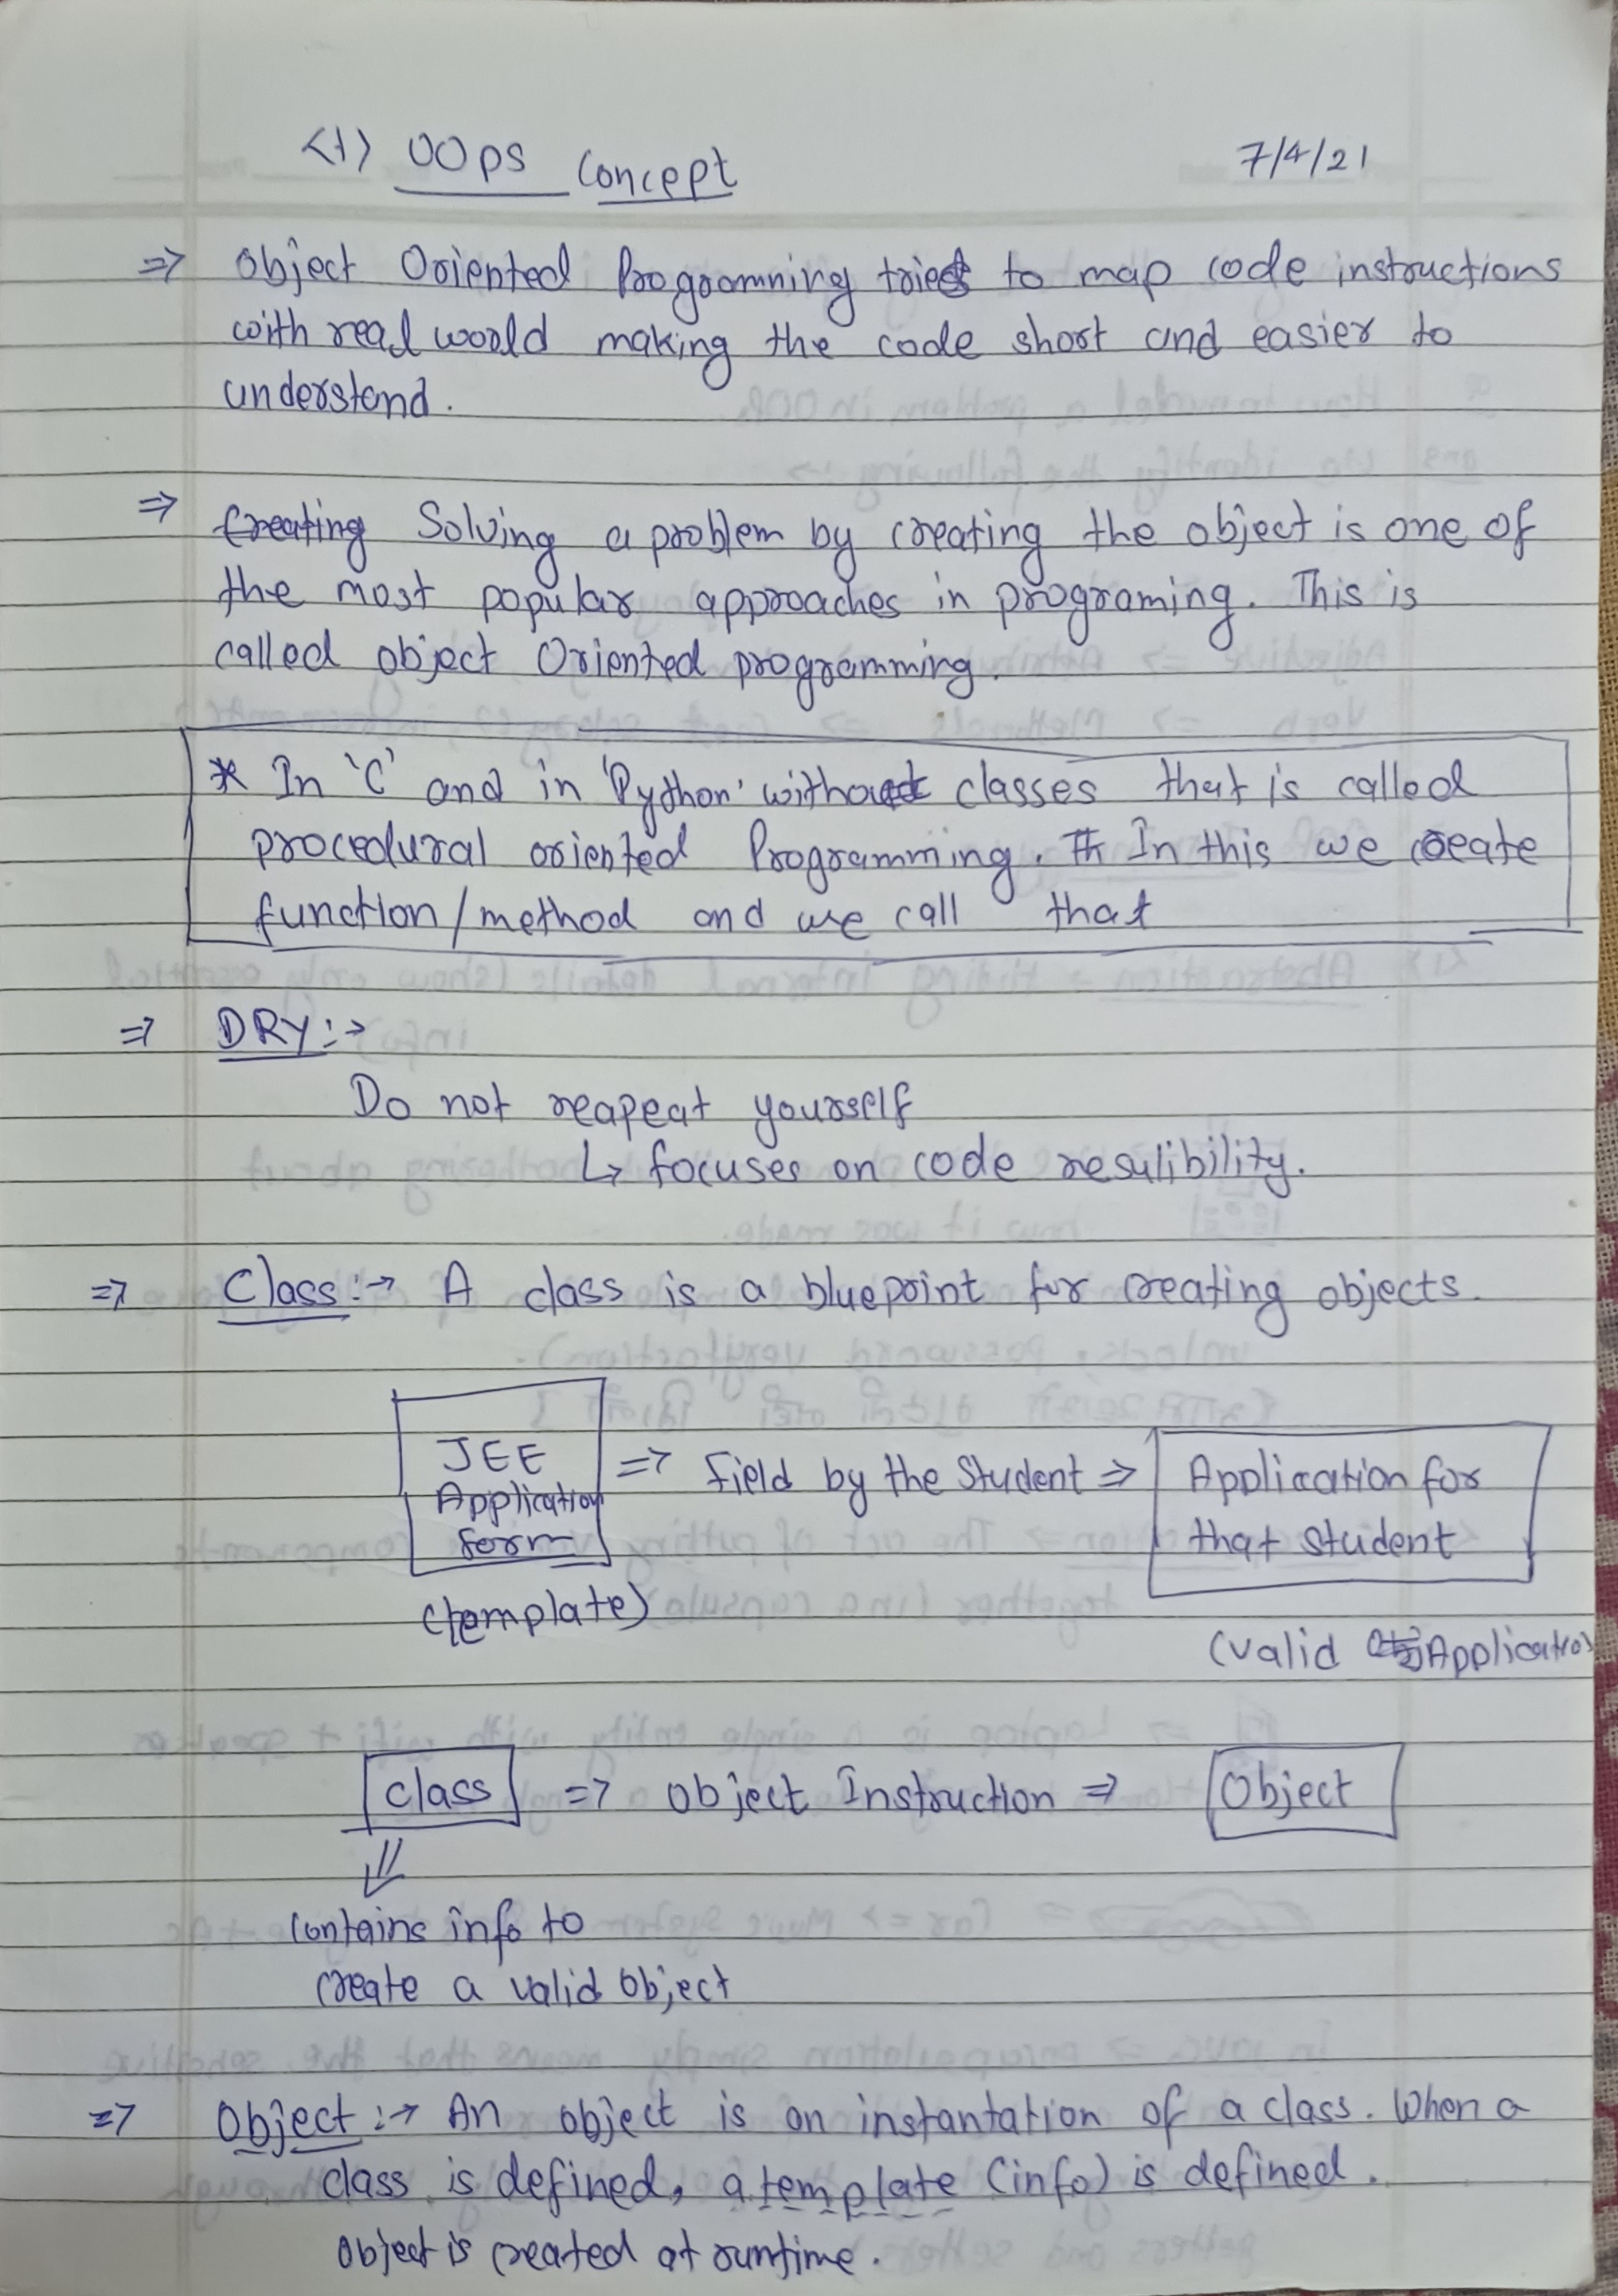 <1> OOPs Concept 7/4/21
=> Object Oriented Programming tries to map code instructions
with real world making the code short and easier to
understand.
=> Creating Solving a problem by creating the object is one of
the most popular approaches in programing. This is
called object Oriented programming.
* In 'C' and in 'Python' without classes that is called
procedural oriented Programming. In this we create
function/method and we call that
=> DRY :->
Do not reapeat yourself
↳ focuses on code resulibility.
=> Class :-> A class is a blueprint for creating objects.
JEE
Application
form
=> field by the Student =>
Application for
that student
(template)
(valid Application
class => object Instruction => Object
⇓
contains info to
create a valid object
=> Object :-> An object is an instantation of a class. When a
class is defined, a template (info) is defined.
Object is created at runtime.